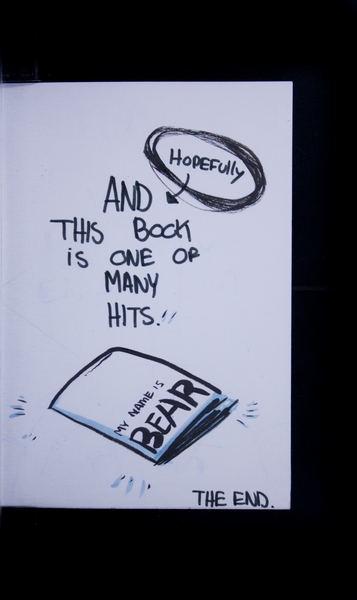 HOPEFULLY
AND
THIS BOOK
IS ONE OF
MANY
HITS.!!
MY NAME IS
BEAR
THE END.